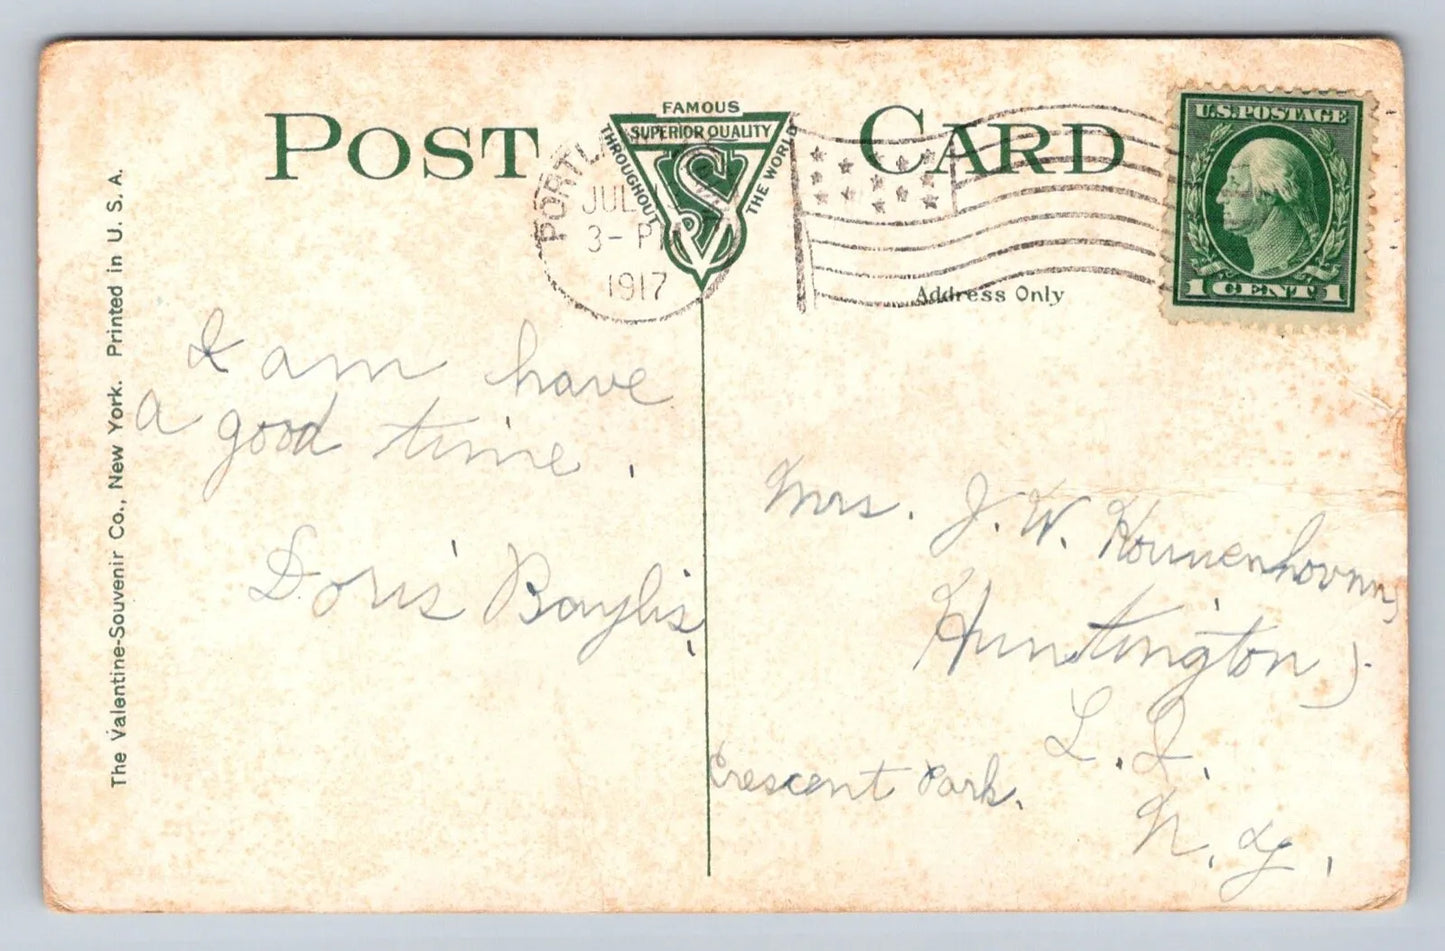 POST CARD
FAMOUS
SUPERIOR QUALITY
THROUGHOUT
THE WORLD
VS
PORTL
JUL
3- PM
1917
U.S. POSTAGE
1 CENT 1
Address Only
The Valentine-Souvenir Co., New York. Printed in U. S. A.
I am have
a good time.
Doris Baylis,
Mrs. J. W. Kouwenhoven,
Huntington,
L. I.
Crescent Park.
N. Y.